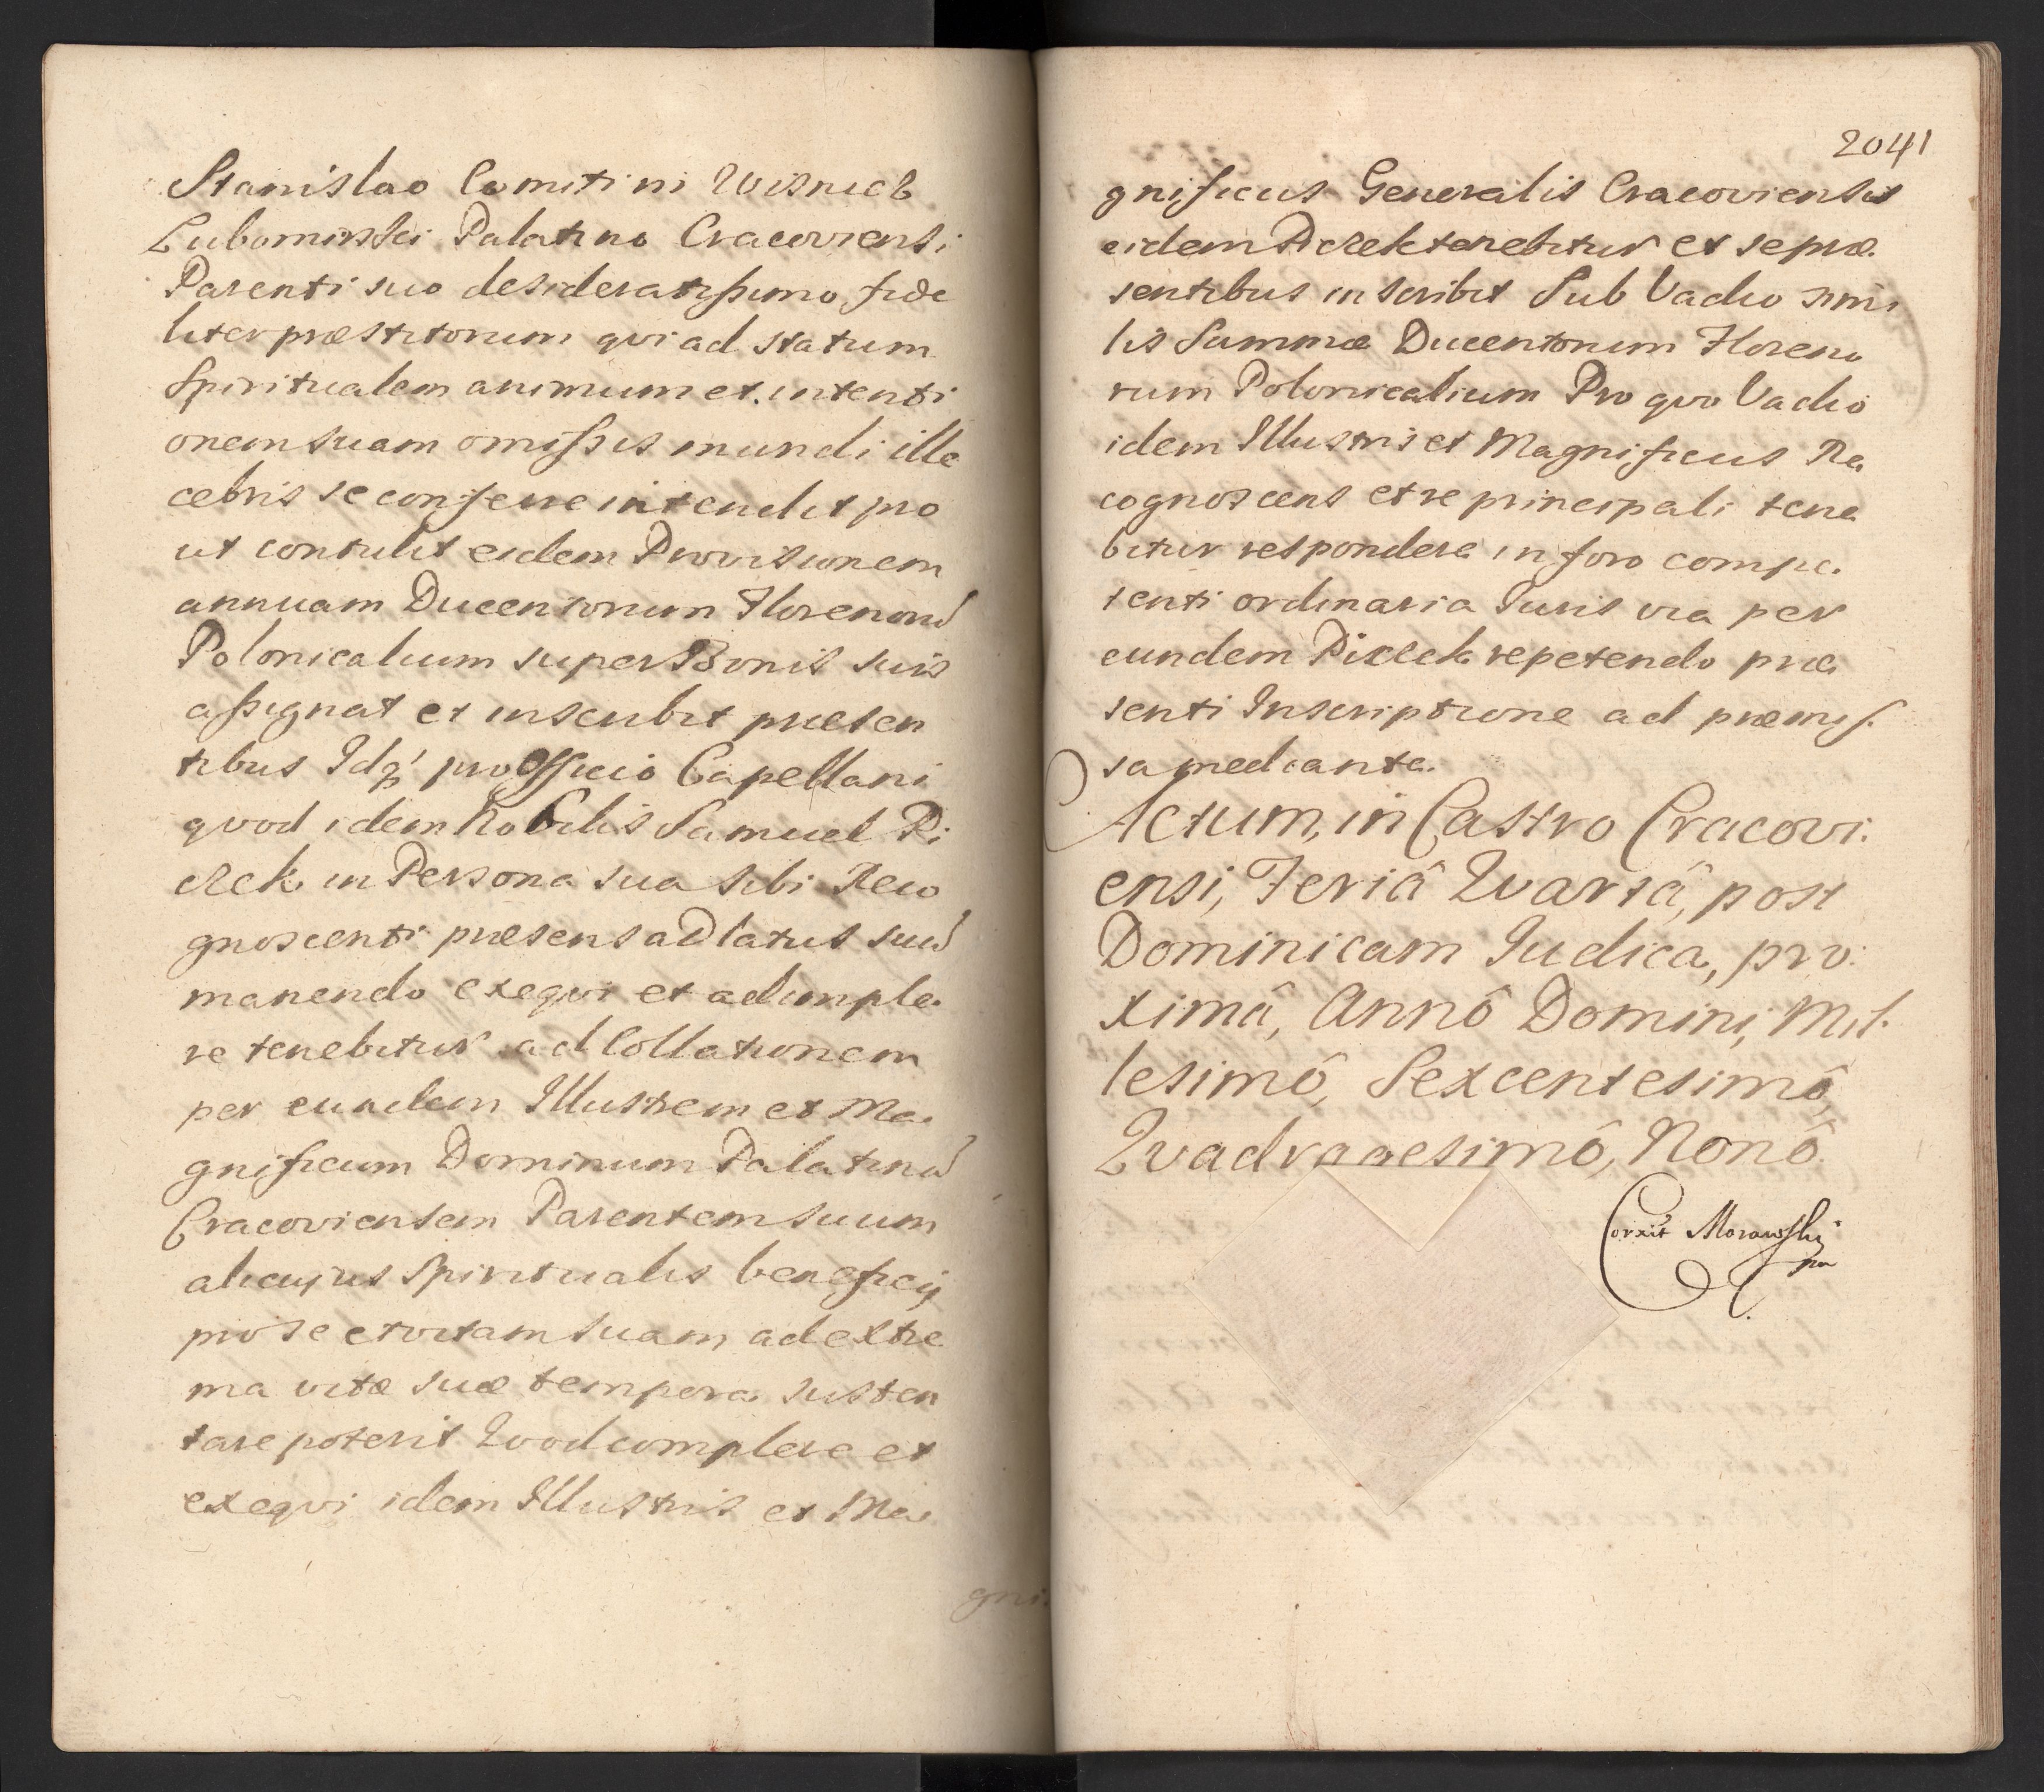 Stanislao Comiti in Wisnicz
Lubomirski Palatino Cracoviensi
Parenti suo desideratissimo fide
liter præstitorum qvi ad statum
Spiritualem animum et intenti
onem suam omissis mundi ille
cebris se conferre intendit pro
ut contulit eidem Provisionem
annuam Ducentorum Florenorū
Polonicalium super Bonis suis
assignat et inscribit præsen
tibus Idq' pro Officio Capellani
qvod idem Nobilis Samuel Pi
czek in Persona sua sibi Reco
gnoscenti præsens ad latus suū
manendo exeqvi et adimple
re tenebitur ad Collationem
per eundem Illustrem et Ma
gnificum Dominum Palatinū
Cracoviensem Parentem suum
alicujus Spiritualis beneficij
pro se et vitam suam ad extre
ma vitæ suæ tempora susten
tare poterit Qvod complere et
exeqvi idem Illustris et Ma
gni.
2041
gnificus Generalis Cracoviensis
eidem Piczek tenebitur et se præ
sentibus inscribit Sub Vadio simi
lis Summæ Ducentorum Floreno
rum Polonicalium Pro qvo Vadio
idem Illustris et Magnificus Re
cognoscens et re principali tene
bitur respondere in foro compe.
tenti ordinaria Juris via per
eundem Piczek repetendo præ
senti Inscriptione ad præmis.
sa mediante.
Actum, in Castro Cracovi.
ensi, Feriâ Qvartâ, post
Dominicam Judica, pro.
ximâ, Annô Domini, Mil.
lesimô, Sexcentesimô,
Qvadragesimô, Nonô.
Correxit Morawski
mp